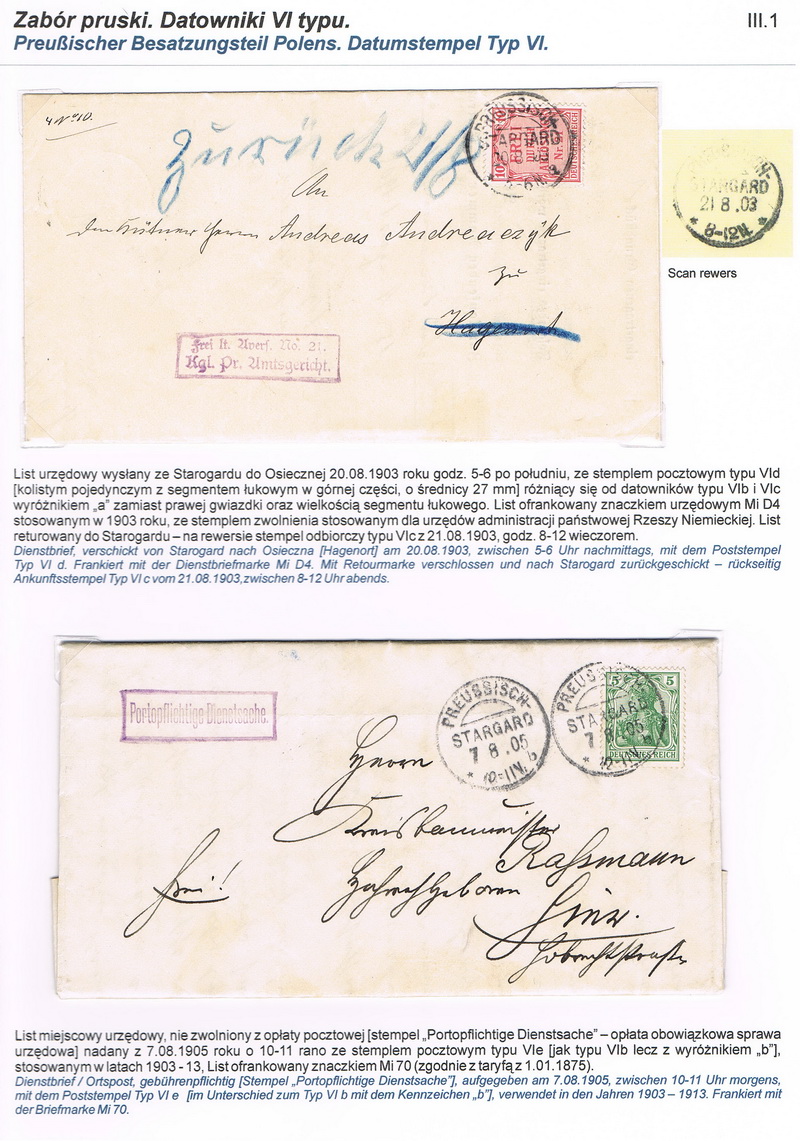 Zabór pruski. Datowniki VI typu.
III.1
Preußischer Besatzungsteil Polens. Datumstempel Typ VI.
Zurück 21/8
PREUSSISCH-
STARGARD
FREI
DEUTSCHES REICH
An
den Herrn Andreas Andreaczyk
zu
Hagenort
Frei lt. Avers. No. 21.
Kgl. Pr. Amtsgericht.
STARGARD
21 8 .03
* 8-12N. *
Scan rewers
List urzędowy wysłany ze Starogardu do Osiecznej 20.08.1903 roku godz. 5-6 po południu, ze stemplem pocztowym typu VId
[kolistym pojedynczym z segmentem łukowym w górnej części, o średnicy 27 mm] różniący się od datowników typu VIb i VIc
wyróżnikiem „a” zamiast prawej gwiazdki oraz wielkością segmentu łukowego. List ofrankowany znaczkiem urzędowym Mi D4
stosowanym w 1903 roku, ze stemplem zwolnienia stosowanym dla urzędów administracji państwowej Rzeszy Niemieckiej. List
returowany do Starogardu – na rewersie stempel odbiorczy typu VIc z 21.08.1903, godz. 8-12 wieczorem.
Dienstbrief, verschickt von Starogard nach Osieczna [Hagenort] am 20.08.1903, zwischen 5-6 Uhr nachmittags, mit dem Poststempel
Typ VI d. Frankiert mit der Dienstbriefmarke Mi D4. Mit Retourmarke verschlossen und nach Starogard zurückgeschickt – rückseitig
Ankunftsstempel Typ VI c vom 21.08.1903,zwischen 8-12 Uhr abends.
Portopflichtige Dienstsache.
PREUSSISCH-
STARGARD
7 8 .05
* 10-11V. b
PREUSSISCH-
STARGARD
7 8 .05
* 10-11V. b
5 5
DEUTSCHES REICH
Herrn
Kreisbaumeister
Rassmann
Hochwohlgeboren
frei!
hier.
List miejscowy urzędowy, nie zwolniony z opłaty pocztowej [stempel „Portopflichtige Dienstsache” – opłata obowiązkowa sprawa
urzędowa] nadany z 7.08.1905 roku o 10-11 rano ze stemplem pocztowym typu VIe [jak typu VIb lecz z wyróżnikiem „b”],
stosowanym w latach 1903 - 13, List ofrankowany znaczkiem Mi 70 (zgodnie z taryfą z 1.01.1875).
Dienstbrief / Ortspost, gebührenpflichtig [Stempel „Portopflichtige Dienstsache”], aufgegeben am 7.08.1905, zwischen 10-11 Uhr morgens,
mit dem Poststempel Typ VI e [im Unterschied zum Typ VI b mit dem Kennzeichen „b”], verwendet in den Jahren 1903 – 1913. Frankiert mit
der Briefmarke Mi 70.